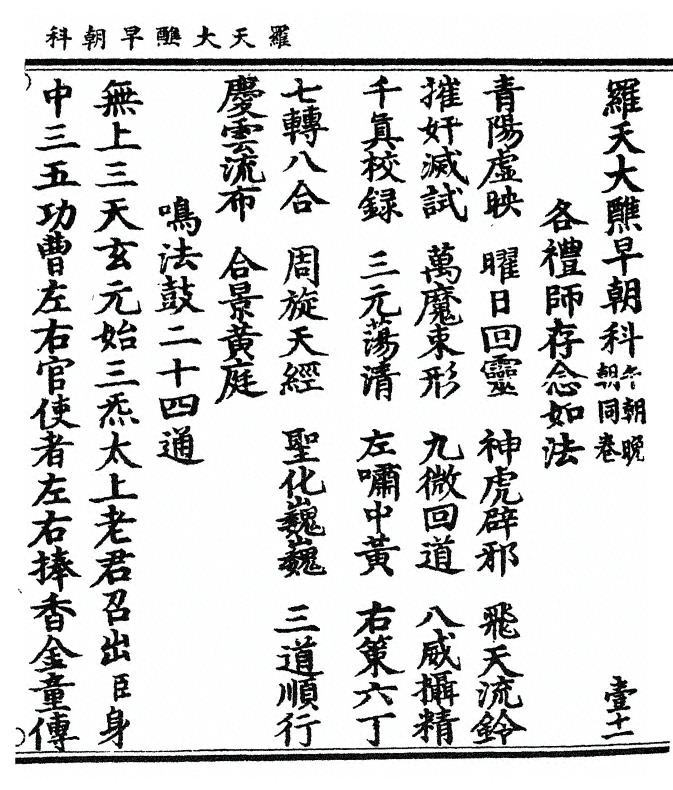 羅天大醮早朝科
羅天大醮早朝科 午朝晚朝同卷 壹十一
各禮師存念如法
青陽虛映 曜日回靈 神虎辟邪 飛天流鈴
摧奸滅試 萬魔束形 九微回道 八威攝精
千眞校録 三元蕩清 左嘯中黃 右策六丁
七轉八合 周旋天經 聖化巍巍 三道順行
慶雲流布 合景黃庭
鳴法鼓二十四通
無上三天玄元始三炁太上老君召出臣身
中三五功曹左右官使者左右捧香金童傳